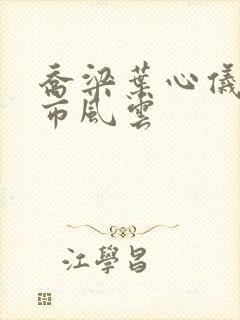 喬梁葉心儀
市風雲
江學昌